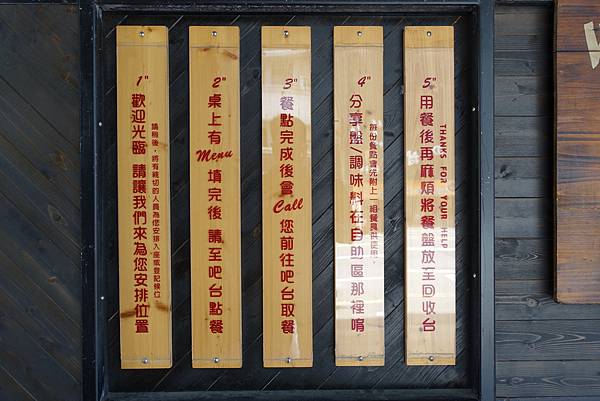 1"
歡迎光臨 請讓我們來為您安排位置
請稍後，將有親切的人員為您安排入座或登記候位。
2"
桌上有 Menu 填完後 請至吧台點餐
3"
餐點完成後會 Call 您前往吧台取餐
4"
分享盤/調味料在自助區那裡唷
每份餐點會先附上一組餐具供使用。
5"
用餐後再麻煩將餐盤放至回收台
THANKS FOR YOUR HELP